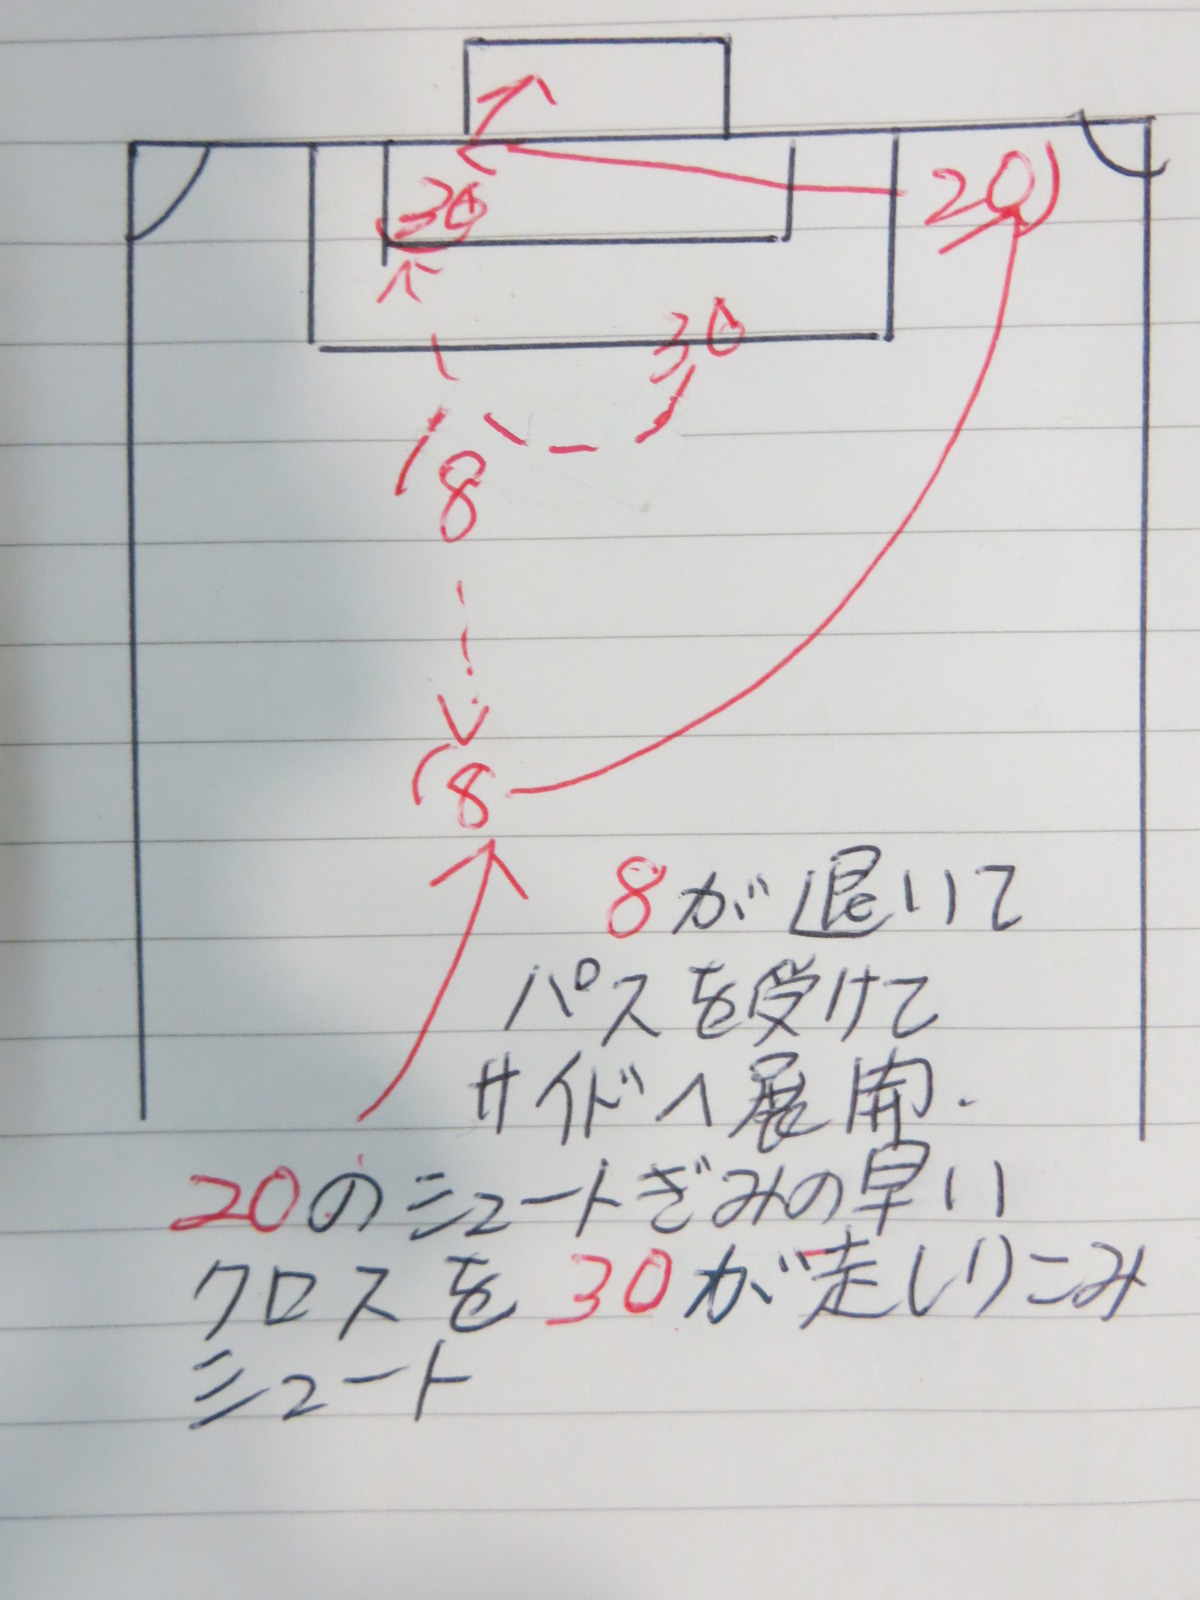 20
30
30
8
8
8が退いて
パスを受けて
サイドへ展開.
20のシュートぎみの早い
クロスを30が走しりこみ
シュート